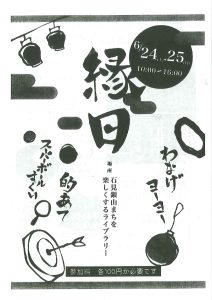 6/24(土)・25(日)
10:00~16:00
縁日
場所
石見銀山まちを
楽しくするライブラリー
わなげ
ヨーヨー
的あて
スーパーボール
すくい
参加料 各100円が必要です